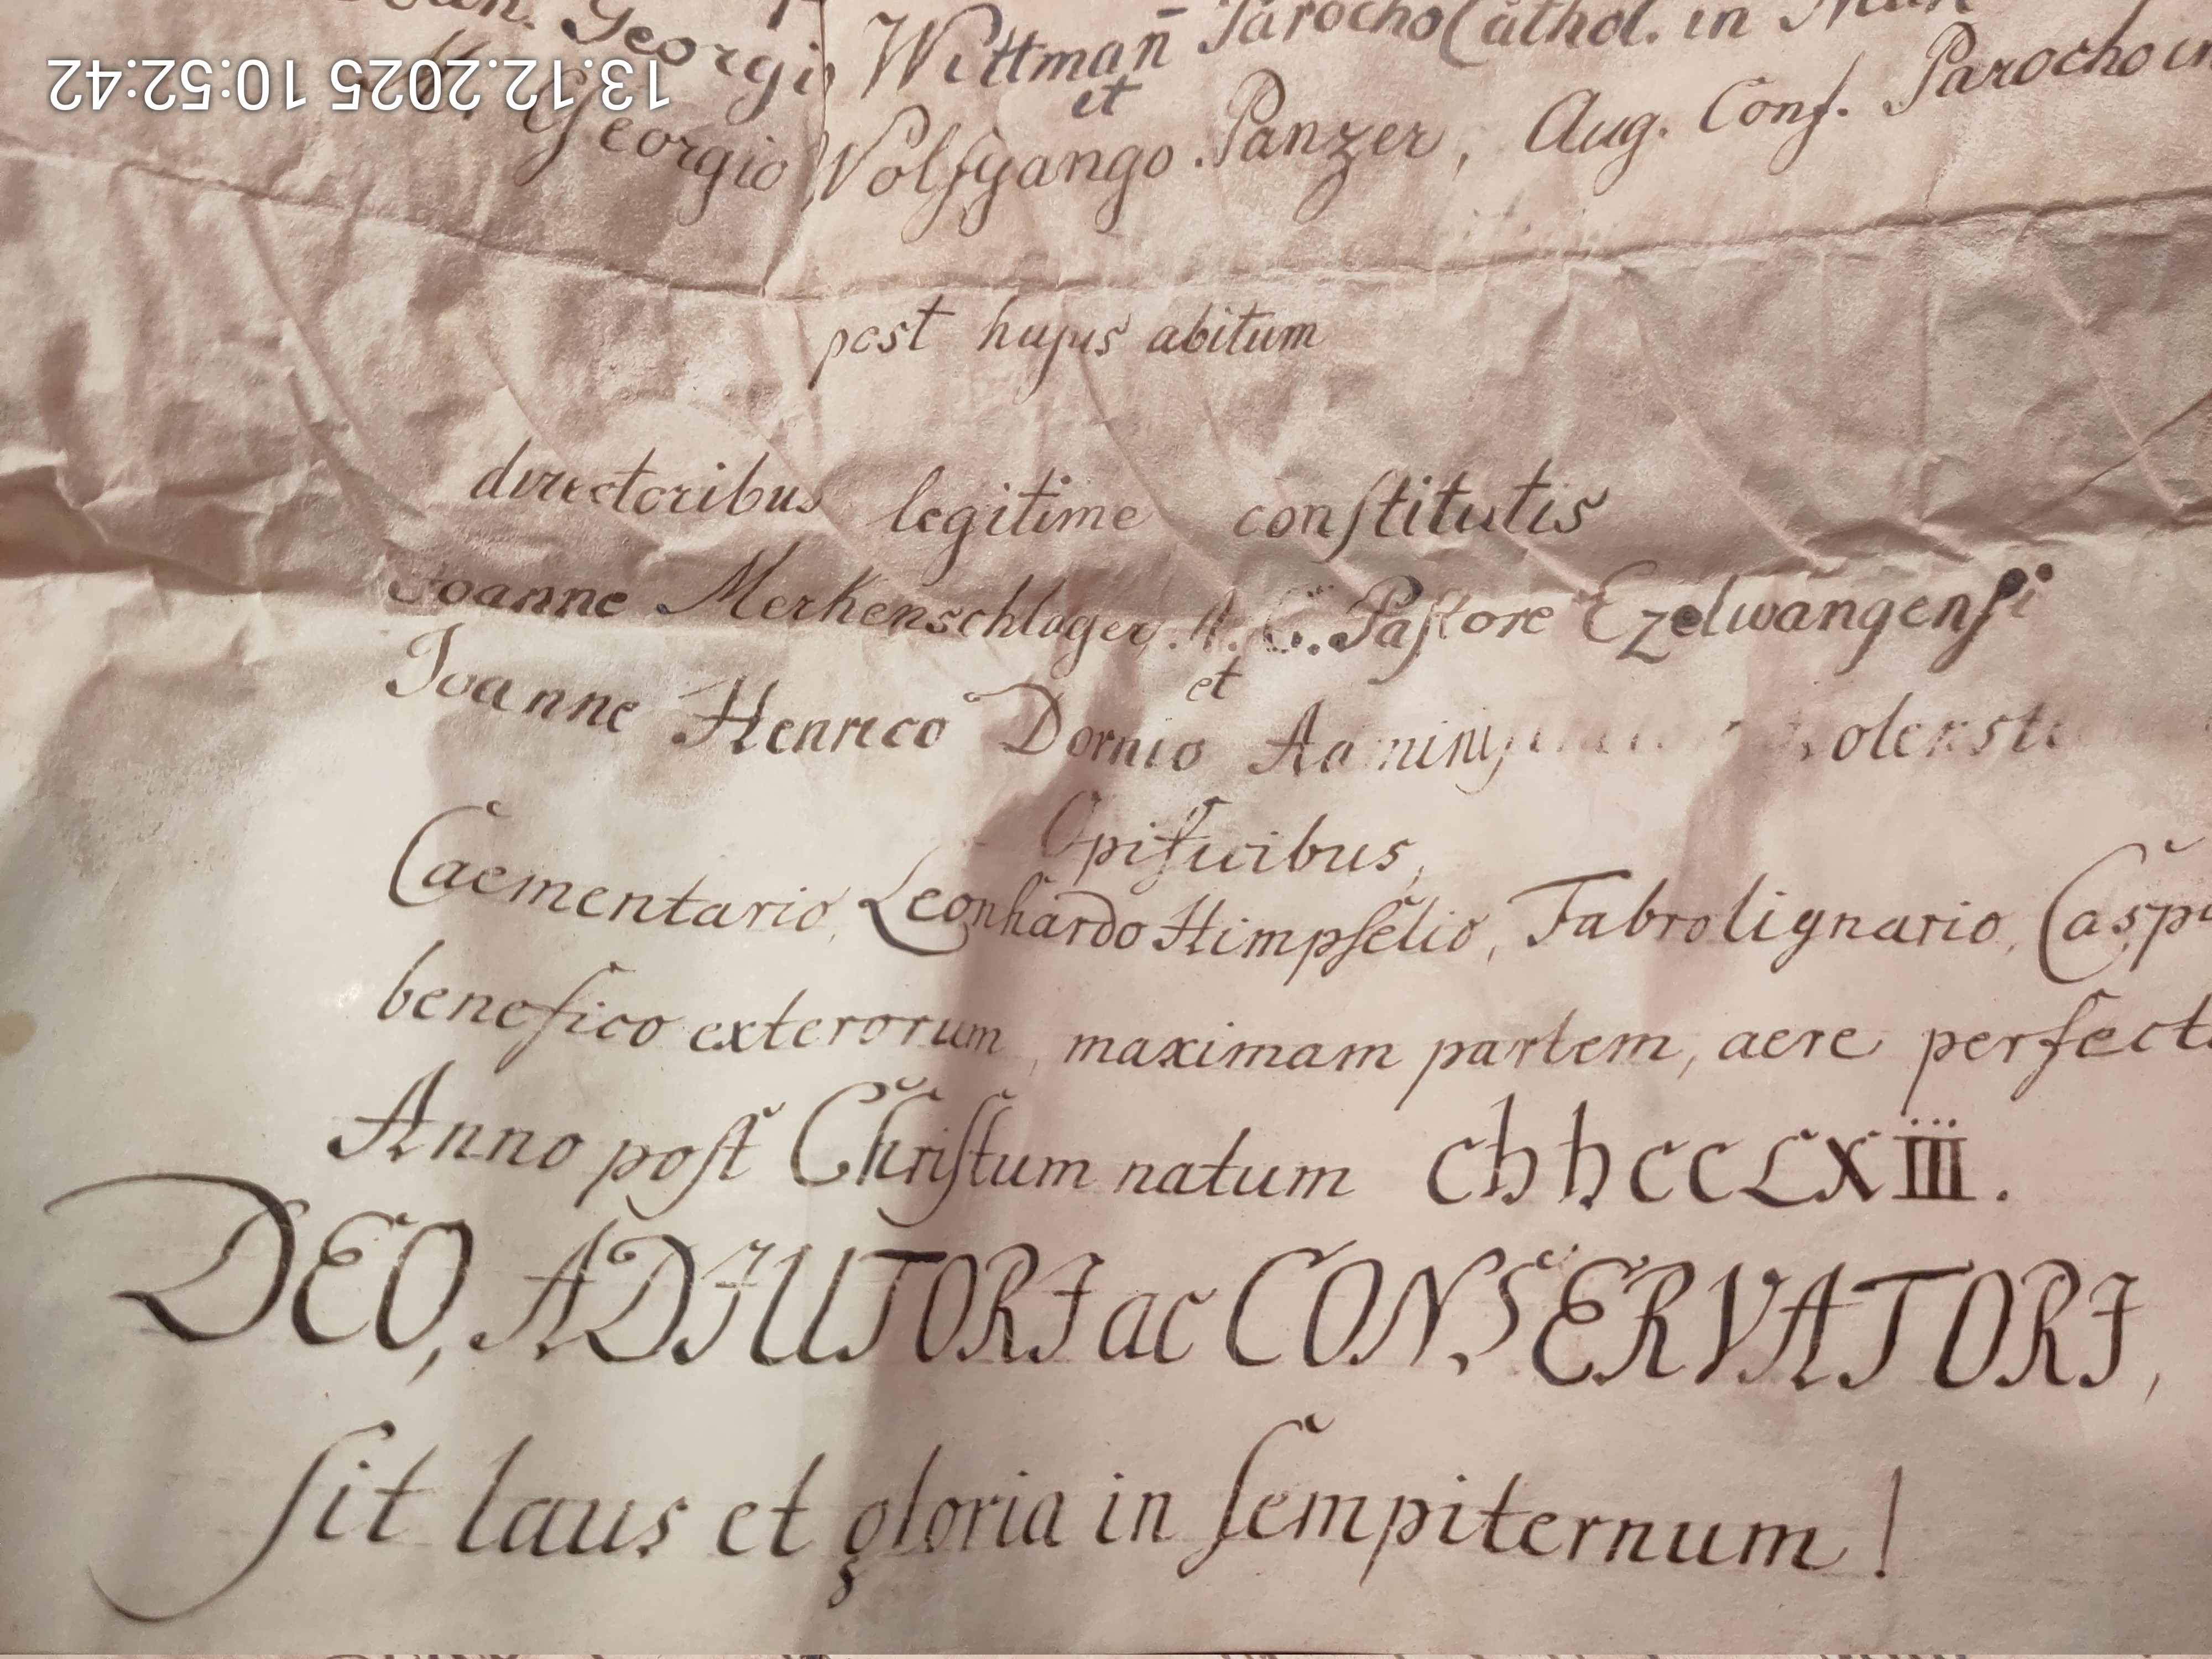 Georgio Wittman̄ Parocho Cathol. in
et
M. Georgio Wolfgango Panzer, Aug. Conf. Parocho in
post hujus abitum
directoribus legitime conſtitutis
Joanne Merkenschlager. A. C. Paſtore Ezelwangenſi
et
Joanne Henrico Dornio
Opificibus,
Caementario, Leonhardo Himpſelio, Fabro lignario, Caspa
benefico exterorum, maximam partem, aere perfect
Anno poſt Chriſtum natum cIɔ Iɔ cc LXiii.
DEO, ADJUTORI ac CONSERVATORI,
ſit laus et gloria in ſempiternum!
13.12.2025 10:52:42